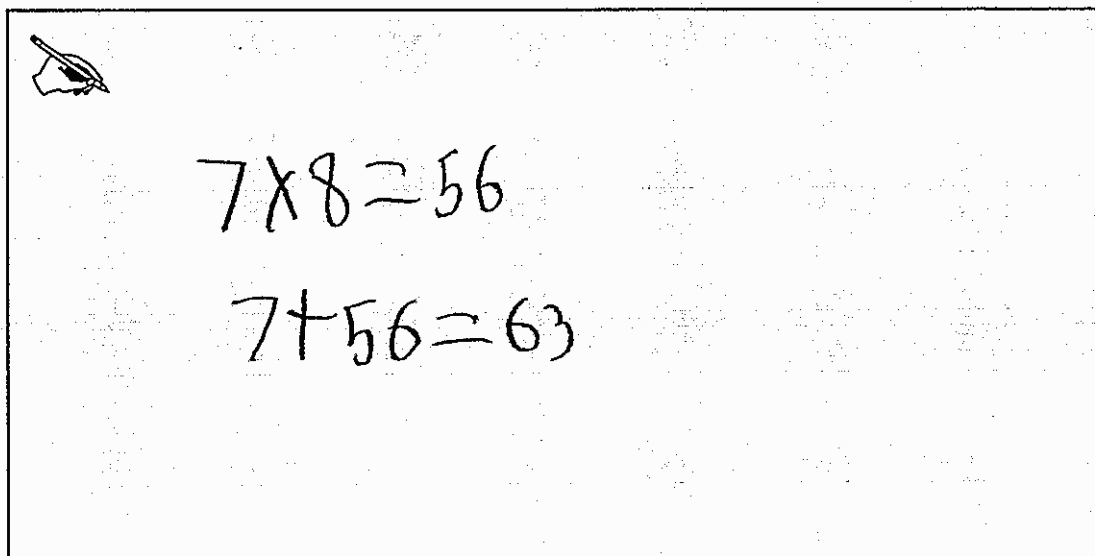 7×8=56
7+56=63